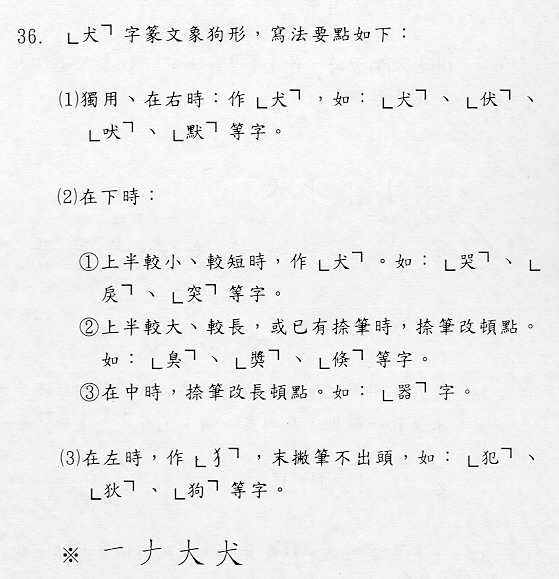 36. ﹂犬﹁字篆文象狗形，寫法要點如下：
⑴獨用、在右時：作﹂犬﹁，如：﹂犬﹁、﹂伏﹁、
﹂吠﹁、﹂默﹁等字。
⑵在下時：
①上半較小、較短時，作﹂犬﹁。如：﹂哭﹁、﹂
戾﹁、﹂突﹁等字。
②上半較大、較長，或已有捺筆時，捺筆改頓點。
如：﹂臭﹁、﹂獎﹁、﹂倏﹁等字。
③在中時，捺筆改長頓點。如：﹂器﹁字。
⑶在左時，作﹂犭﹁，末撇筆不出頭，如：﹂犯﹁、
﹂狄﹁、﹂狗﹁等字。
※ 一ナ大犬